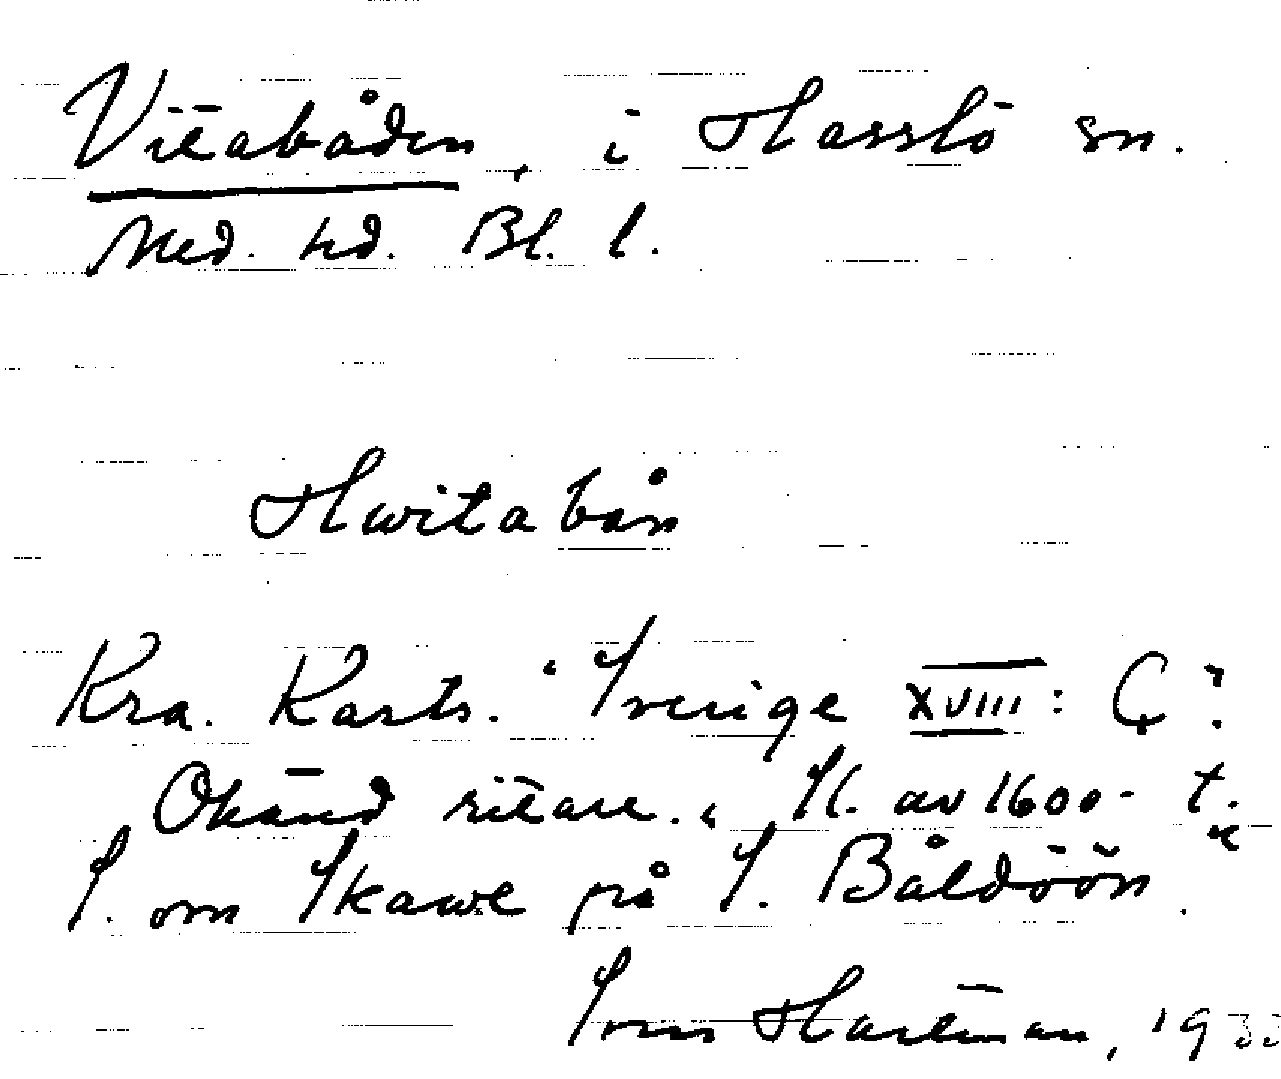 Vitabåden, i Hasslö sn.
Med. hd. Bl. l.
Hwita bån
Kra. Karts. "Sverige XVIII: Ç?
Okänd ritare. "Sl. av 1600-t."
S. om Skawe på S. Båldöön.
Hartman, 193